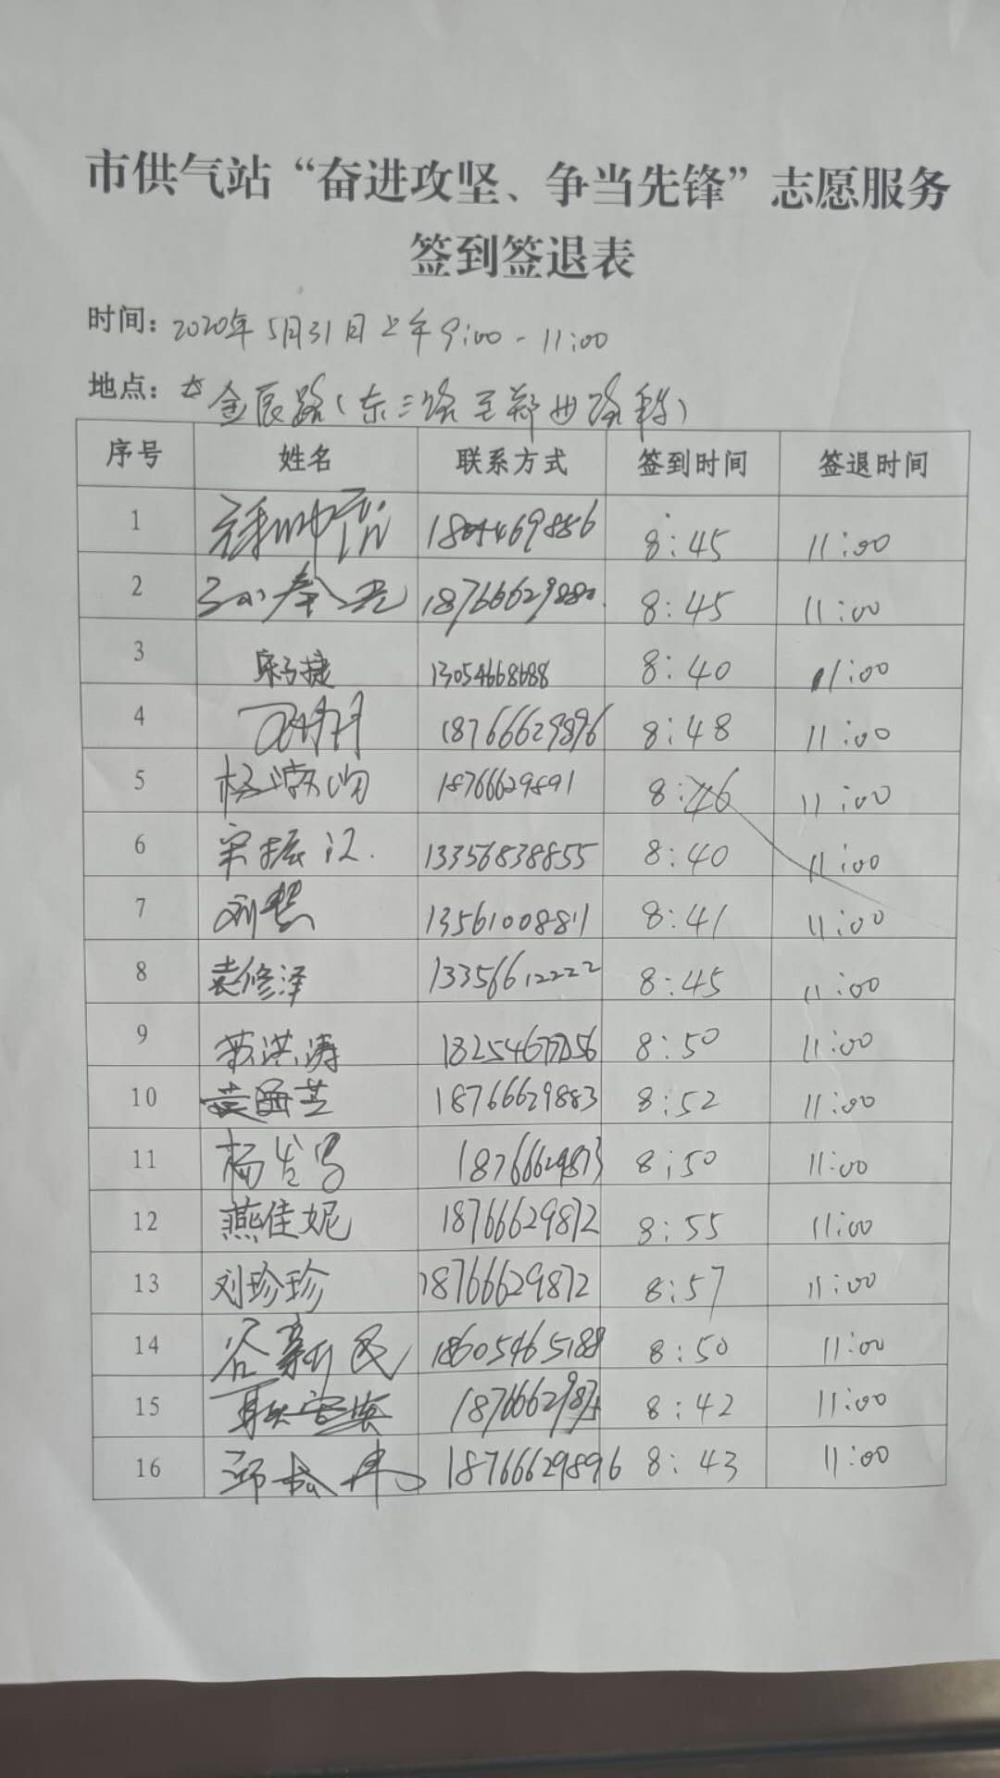 市供气站“奋进攻坚、争当先锋”志愿服务
签到签退表
时间：2020年5月31日上午9:00-11:00
地点：金辰路（东三路至郑州路段）
序号 姓名 联系方式 签到时间 签退时间
1 8:45 11:00
2 18766629880 8:45 11:00
3 13054668688 8:40 11:00
4 18766629896 8:48 11:00
5 18766629891 8:46 11:00
6 宋振江 13356838855 8:40 11:00
7 刘慧 13561008811 8:41 11:00
8 袁修泽 13356612222 8:45 11:00
9 苏洪涛 8:50 11:00
10 18766629883 8:52 11:00
11 杨 18766629873 8:50 11:00
12 燕佳妮 18766629872 8:55 11:00
13 刘珍珍 18766629872 8:57 11:00
14 谷新民 18605465188 8:50 11:00
15 8:42 11:00
16 邱松伟 18766629896 8:43 11:00